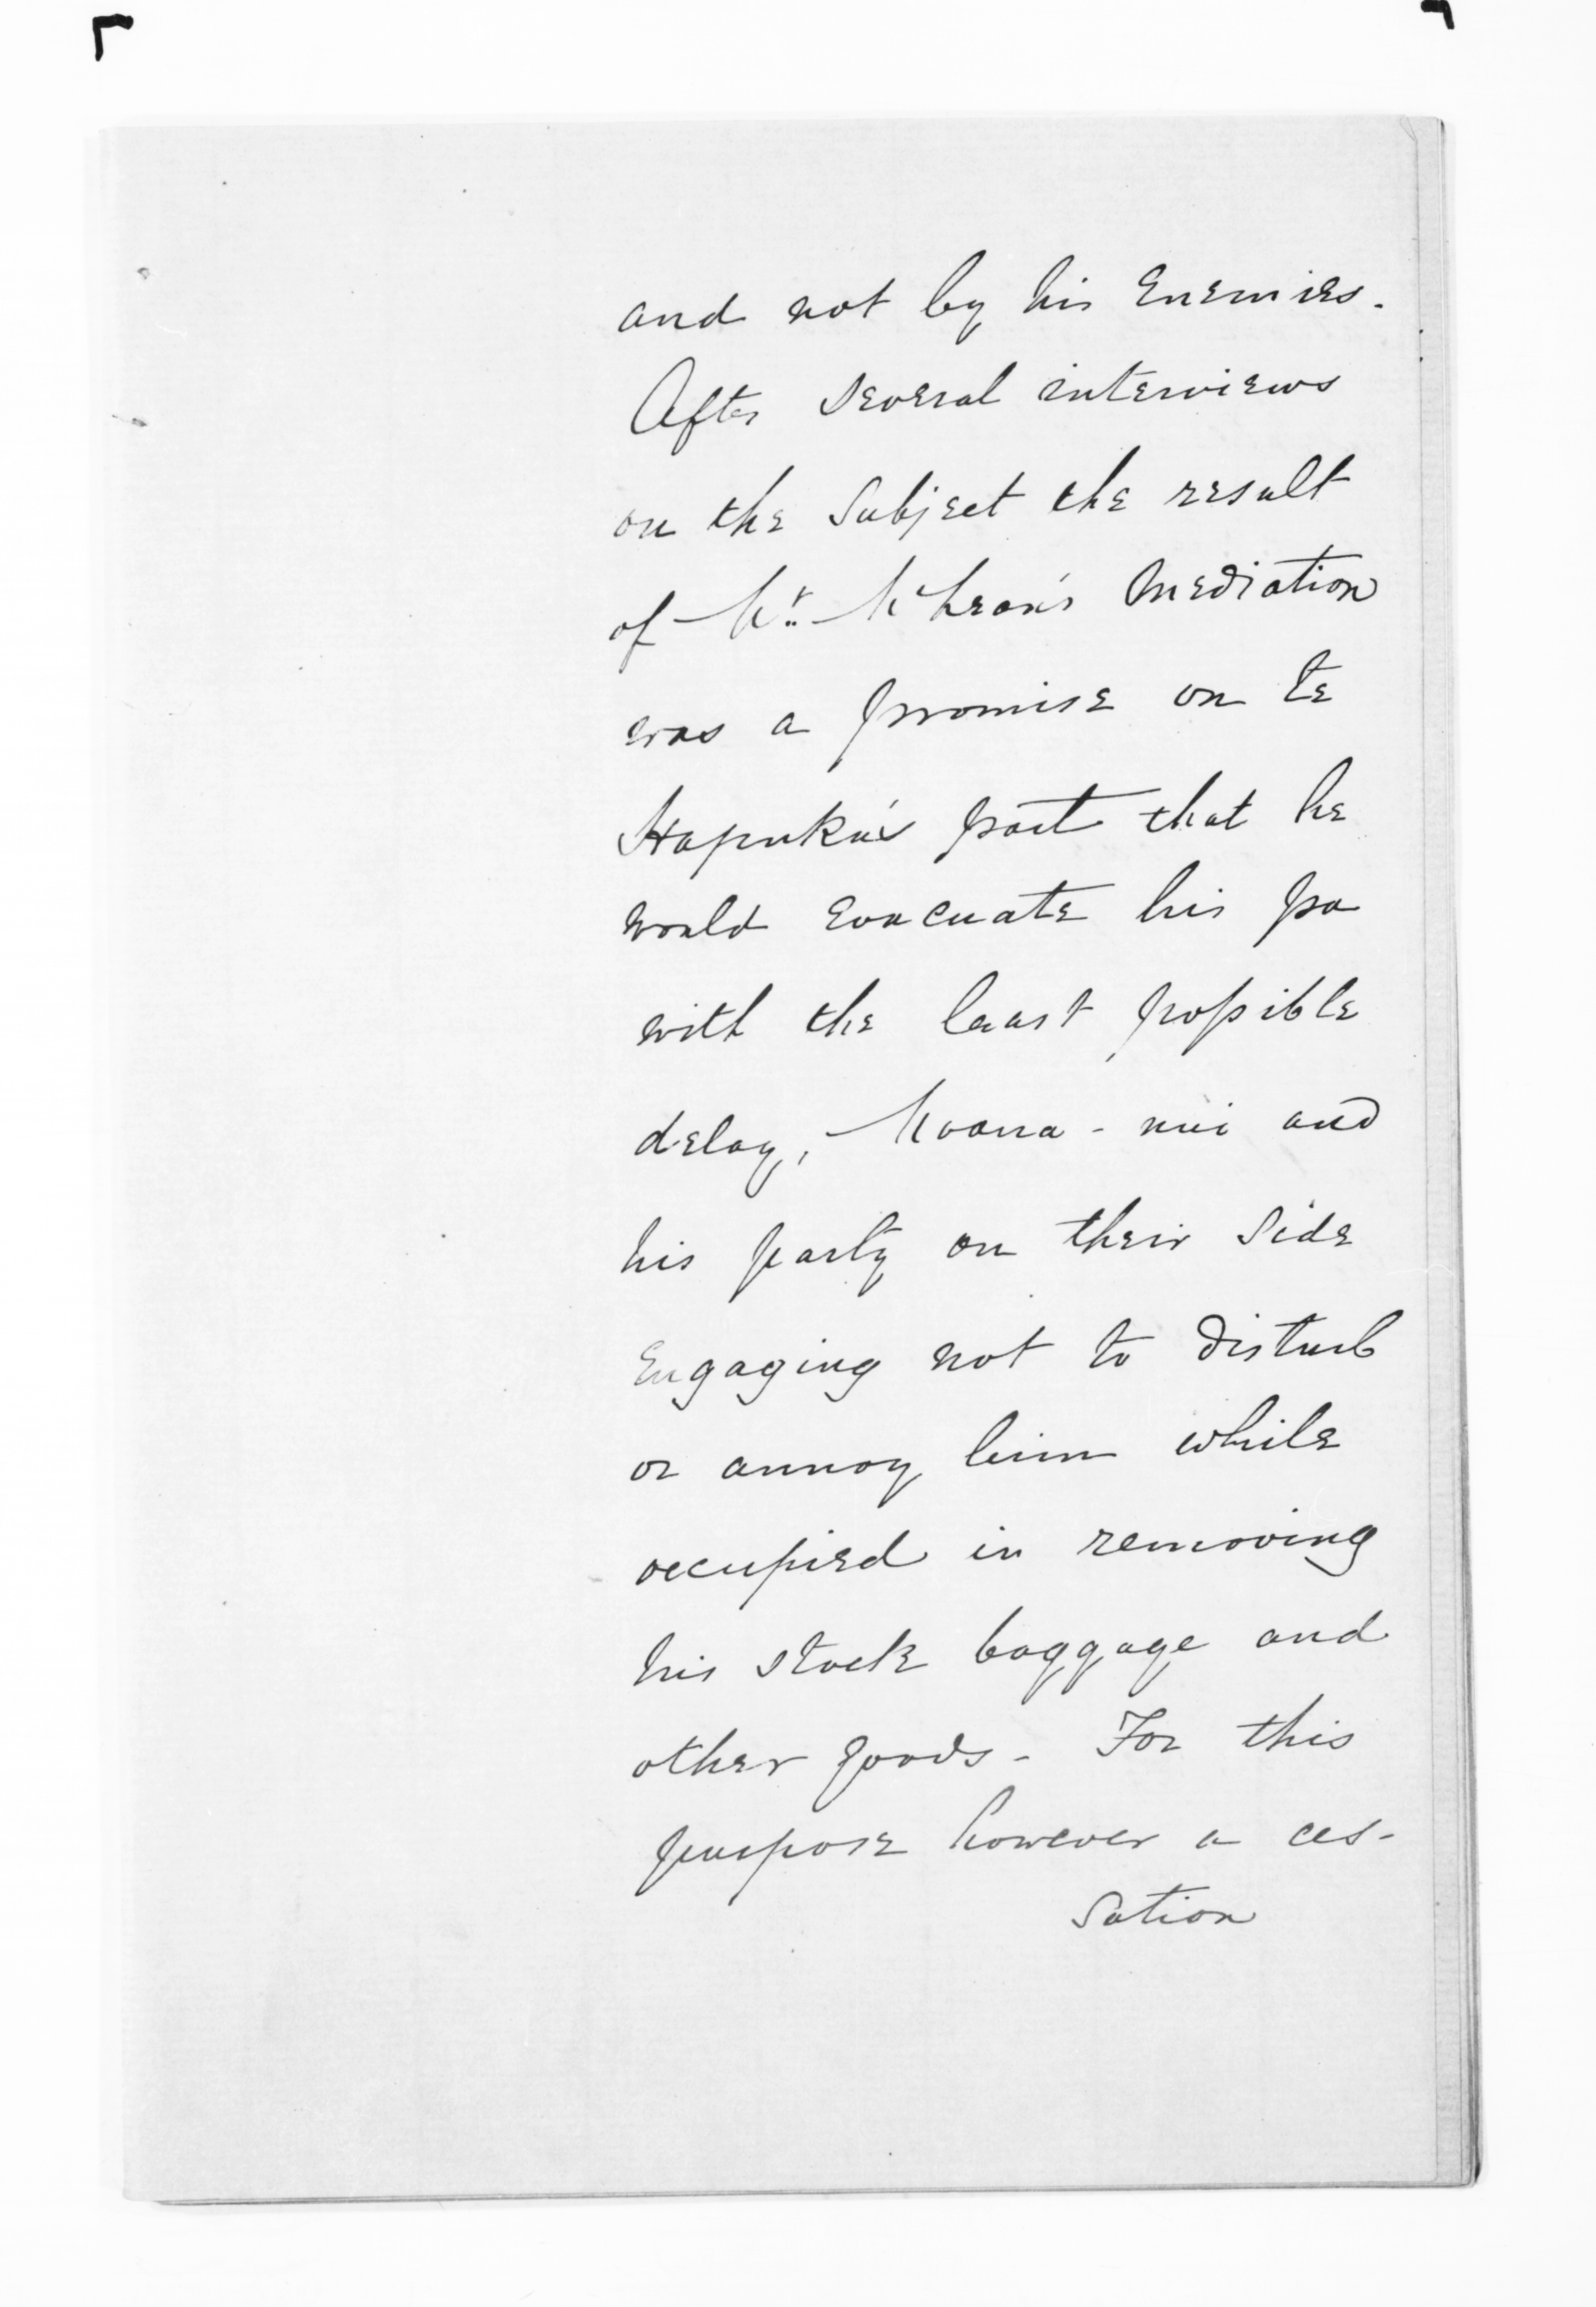 and not by his Enemies.
After several interviews
on the Subject the result
of Mr. McLean's Mediation
was a promise on Te
Hapuku's part that he
would Evacuate his pa
with the least possible
delay, Moana-nui and
his party on their Side
Engaging not to disturb
or annoy him while
occupied in removing
his stock baggage and
other goods. For this
purpose however a ces-
sation